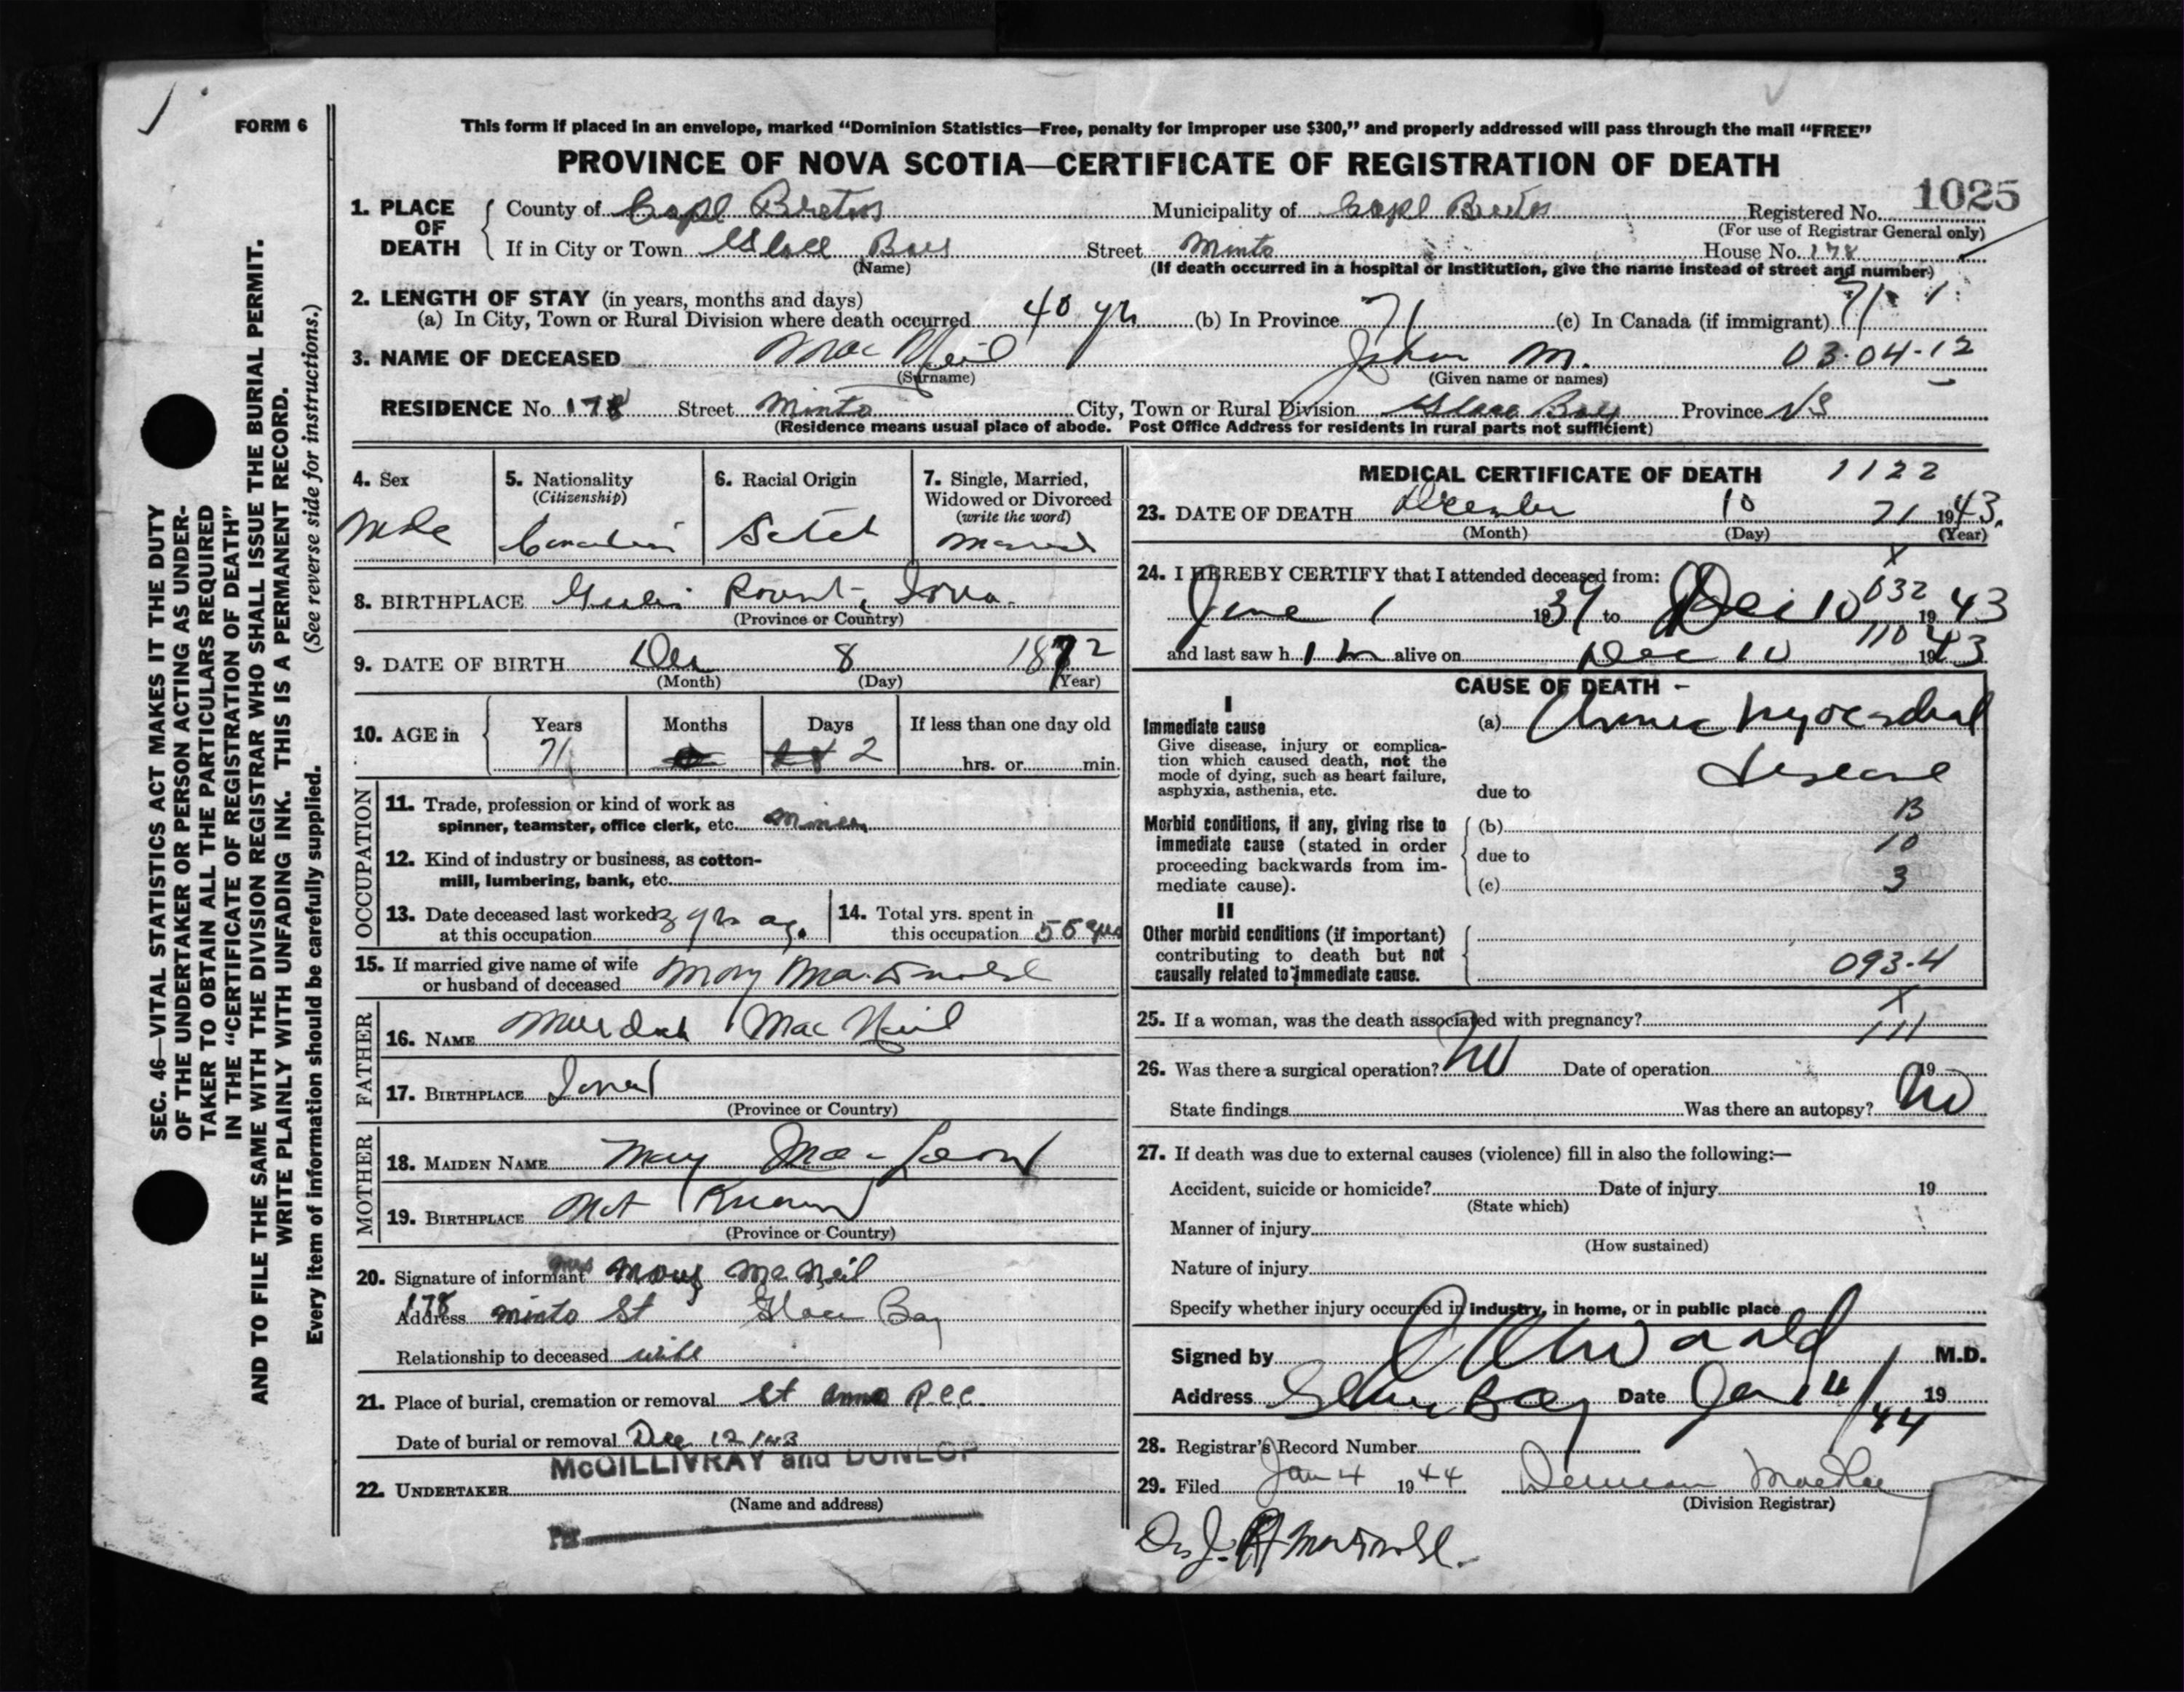 FORM 6
This form if placed in an envelope, marked “Dominion Statistics—Free, penalty for improper use $300,” and properly addressed will pass through the mail “FREE”
PROVINCE OF NOVA SCOTIA—CERTIFICATE OF REGISTRATION OF DEATH
1025
1. PLACE OF DEATH County of Cape Breton Municipality of Cape Breton Registered No.
(For use of Registrar General only)
If in City or Town Glace Bay Street Minto House No. 178
(Name) (If death occurred in a hospital or institution, give the name instead of street and number)
2. LENGTH OF STAY (in years, months and days) 71
(a) In City, Town or Rural Division where death occurred 40 yrs (b) In Province 71 (c) In Canada (if immigrant)
3. NAME OF DECEASED MacNeil John M. 03-04-12
(Surname) (Given name or names)
RESIDENCE No. 178 Street Minto City, Town or Rural Division Glace Bay Province NS
(Residence means usual place of abode. Post Office Address for residents in rural parts not sufficient)
4. Sex Male
5. Nationality (Citizenship) Canadian
6. Racial Origin Scotch
7. Single, Married, Widowed or Divorced (write the word) Married
8. BIRTHPLACE Point, Iona.
(Province or Country)
9. DATE OF BIRTH Dec 8 1872
(Month) (Day) (Year)
10. AGE in Years 71 Months Days 2 If less than one day old hrs. or min.
OCCUPATION
11. Trade, profession or kind of work as
spinner, teamster, office clerk, etc. Miner
12. Kind of industry or business, as cotton-
mill, lumbering, bank, etc.
13. Date deceased last worked at this occupation 3 yrs ago
14. Total yrs. spent in this occupation 55 yrs
15. If married give name of wife
or husband of deceased Mary
FATHER
16. NAME Murdoch MacNeil
17. BIRTHPLACE Iona
(Province or Country)
MOTHER
18. MAIDEN NAME Mary
19. BIRTHPLACE Not Known
(Province or Country)
20. Signature of informant Mrs Mary McNeil
Address 178 Minto St Glace Bay
Relationship to deceased wife
21. Place of burial, cremation or removal St Anns
Date of burial or removal Dec 12/43
McGILLIVRAY and DUNLOP
22. UNDERTAKER
(Name and address)
Per
MEDICAL CERTIFICATE OF DEATH 1122
23. DATE OF DEATH December 10 71 1943.
(Month) (Day) (Year)
24. I HEREBY CERTIFY that I attended deceased from: X
June 1 1937 to Dec 10 632 1943
and last saw h im alive on Dec 10 110 1943
CAUSE OF DEATH
I
Immediate cause (a) Chronic Myocardial
Give disease, injury or complica-
tion which caused death, not the
mode of dying, such as heart failure, disease
asphyxia, asthenia, etc. due to
Morbid conditions, if any, giving rise to (b) B
immediate cause (stated in order due to 10
proceeding backwards from im-
mediate cause). (c) 3
II
Other morbid conditions (if important)
contributing to death but not
causally related to immediate cause. 093-4
X
25. If a woman, was the death associated with pregnancy? 111
26. Was there a surgical operation? No Date of operation 19
State findings Was there an autopsy? No
27. If death was due to external causes (violence) fill in also the following:—
Accident, suicide or homicide? Date of injury 19
(State which)
Manner of injury
(How sustained)
Nature of injury
Specify whether injury occurred in industry, in home, or in public place
Signed by M.D.
Address Glace Bay Date Jan 4/44 19
28. Registrar's Record Number
29. Filed Jan 4 1944
(Division Registrar)
SEC. 46—VITAL STATISTICS ACT MAKES IT THE DUTY
OF THE UNDERTAKER OR PERSON ACTING AS UNDER-
TAKER TO OBTAIN ALL THE PARTICULARS REQUIRED
IN THE “CERTIFICATE OF REGISTRATION OF DEATH”
AND TO FILE THE SAME WITH THE DIVISION REGISTRAR WHO SHALL ISSUE THE BURIAL PERMIT.
WRITE PLAINLY WITH UNFADING INK. THIS IS A PERMANENT RECORD.
Every item of information should be carefully supplied. (See reverse side for instructions.)